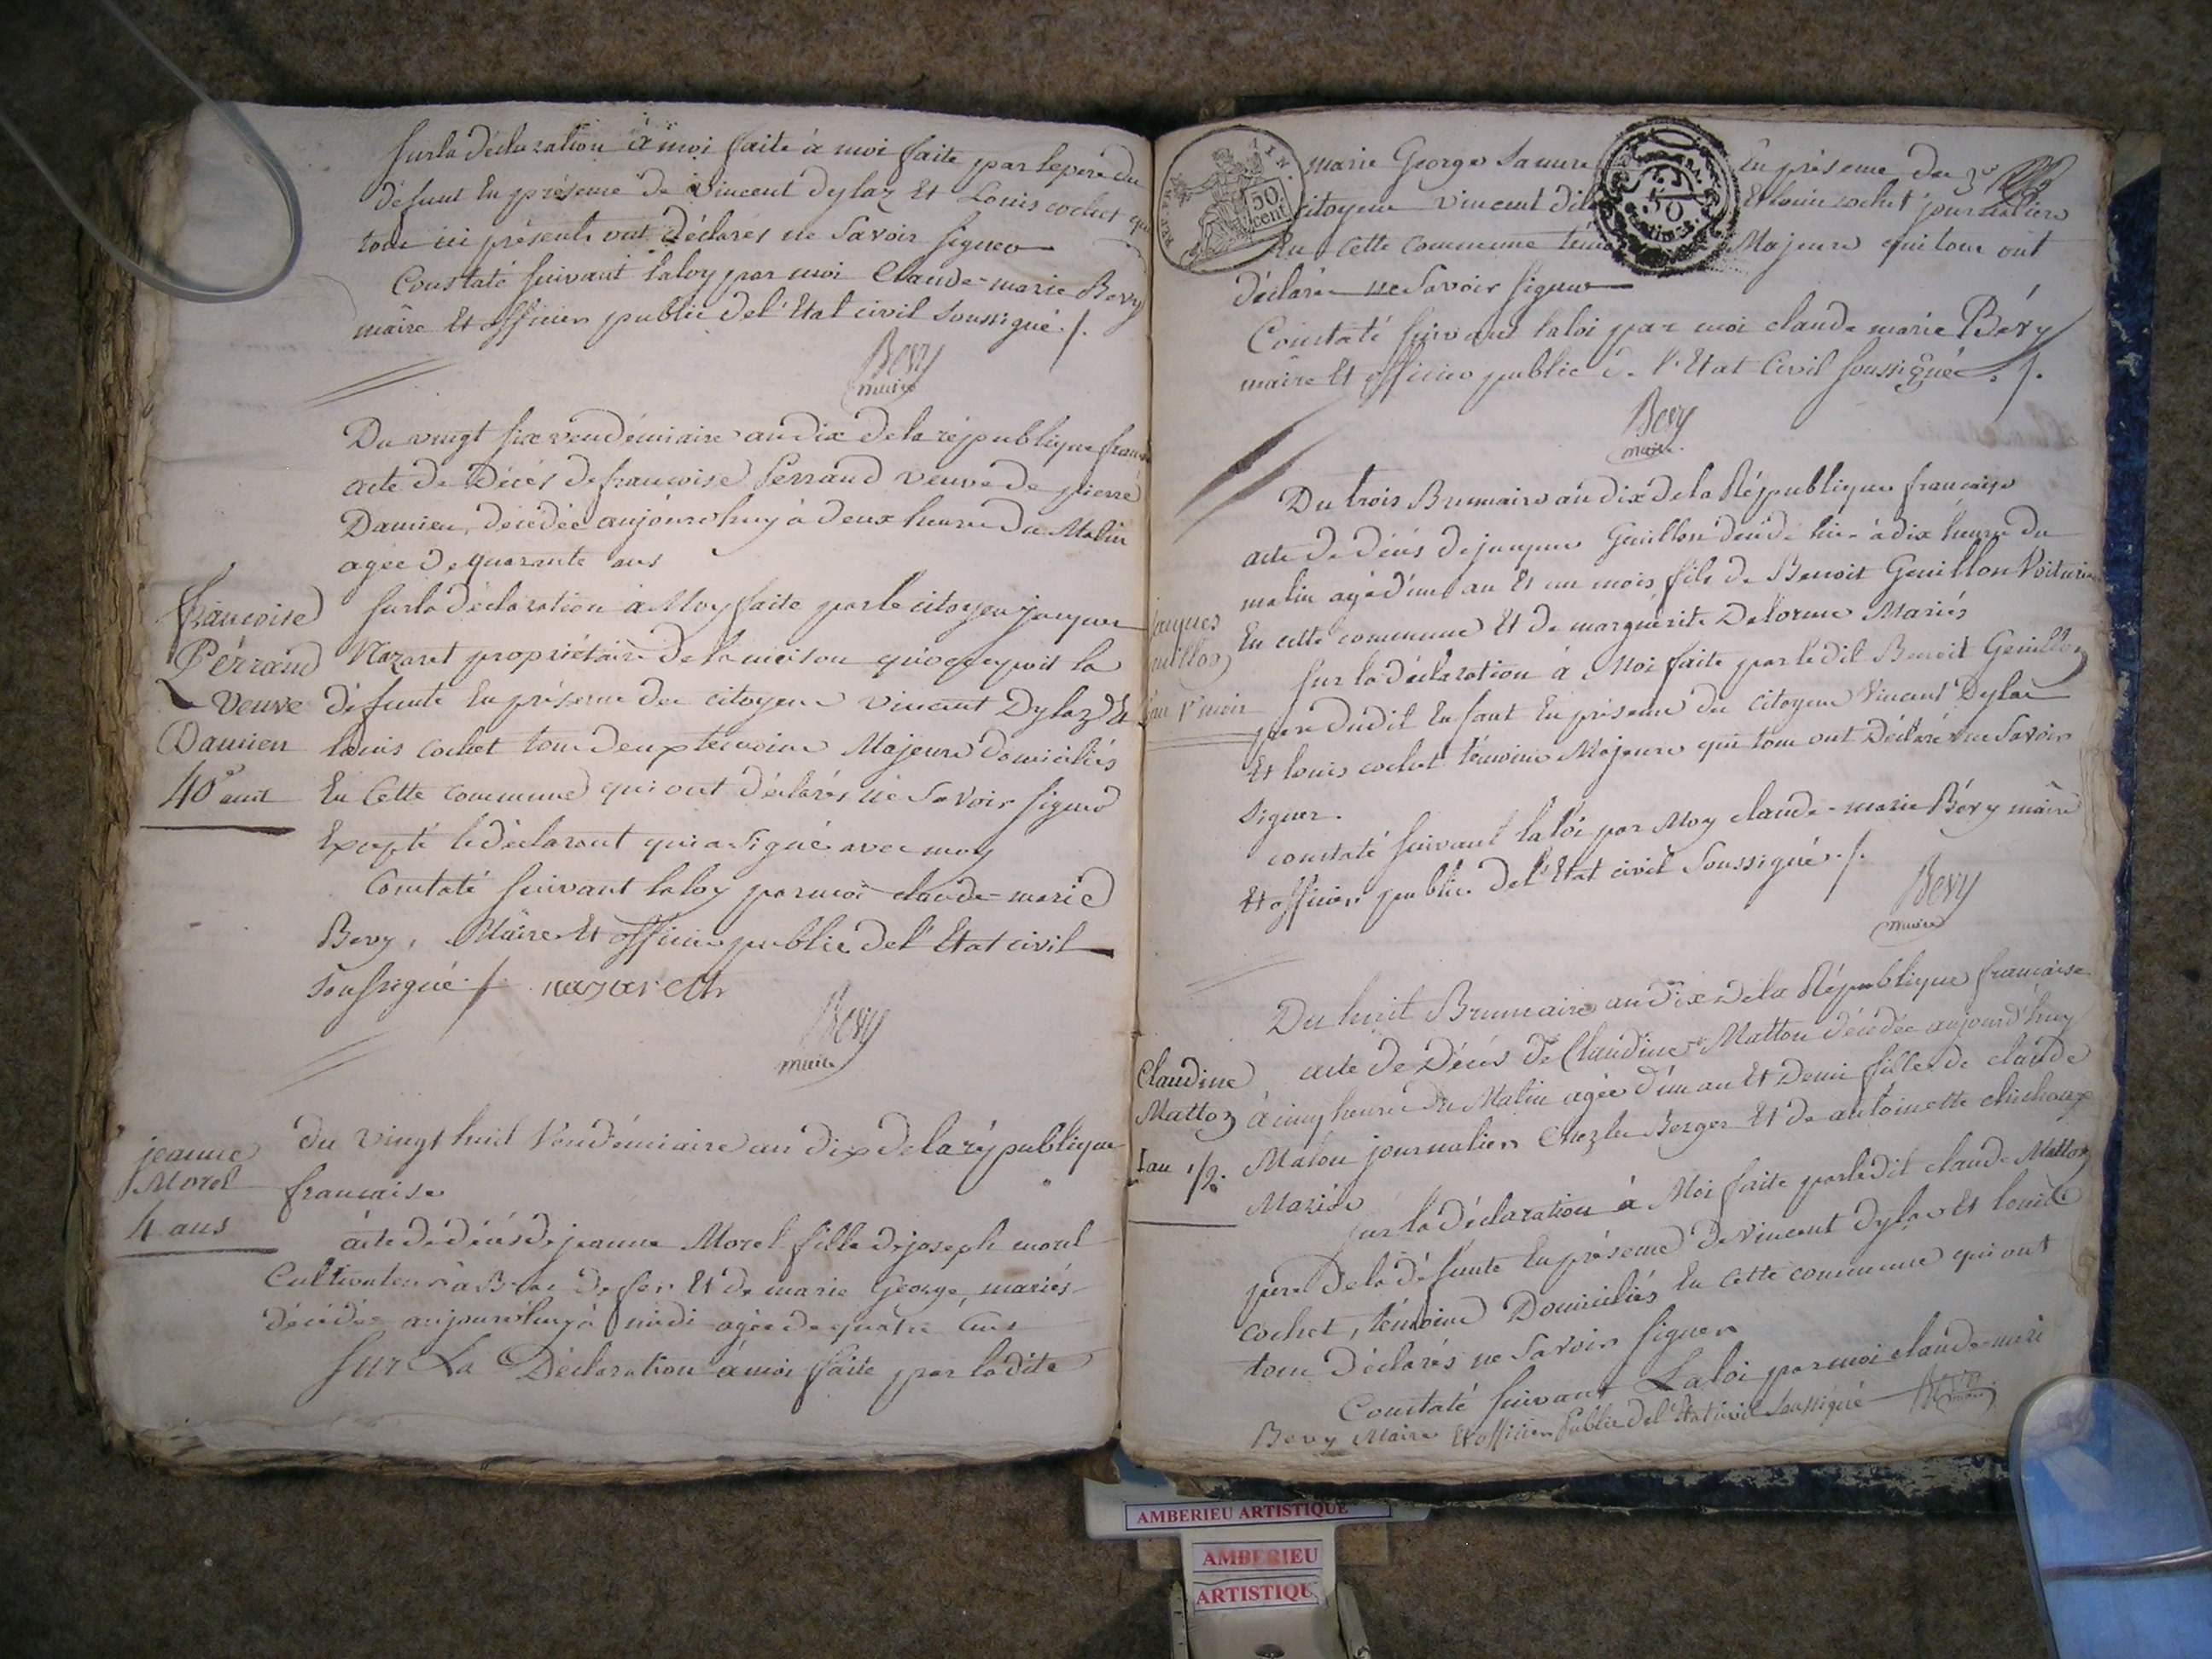 sur la déclaration à moi faite à moi faite par le pere du
défunt En présence de Vincent dylaz Et Louis cochet qui
tous ici présents ont déclarés ne Savoir signer
Constaté suivant la loy par moi Claude-marie Bevy
maire Et officier public de l'Etat civil soussigné ./.
Bevy
maire
Du vingt six vendémiaire an dix de la république
acte de Décés de françoise Perraud veuve de pierre
Damien, décédée aujourdhuy à deux heures du Matin
agée de quarante ans
françoise
Pérraud
veuve
Damien
40 ans
sur la déclaration à Moy faite par le citoyen jacques
Nazaret propriétaire de la maison qu'occupoit la
défunte En présence des citoyens vincent Dylaz Et
louis cochet tous deux temoins Majeurs domiciliés
En Cette commune qui ont déclarés ne Savoir signer
Excepté le déclarant qui a Signé avec moy
Constaté suivant la loy par moi claude-marie
Bevy, Maire Et officier public de l'Etat civil
soussigné ./. nazareth
Bevy
maire
jeanne
Morel
4 ans
du vingt huit Vendémiaire an dix de la république
française
acte de décés de jeanne Morel fille de joseph morel
Cultivateur à Bras de fer Et de marie George, mariés
décédée aujourdhuy à midi agée de quatre ans
sur La Déclaration à moi faite par la dite
REP.
50
cent
50
marie George sa mere En présence des
citoyens Vincent Et louis cochet journaliers
En Cette Commune Majeurs qui tous ont
déclarés ne Savoir signer
Constaté suivant la loi par moi claude marie Bévy
maire Et officier public de l'Etat Civil soussigné ./.
Bevy
maire
Du trois Brumaire an dix de la République française
acte de décés de jacques Guillon décédé hier à dix heures du
matin agé d'un an Et un mois, fils de Benoit Guillon Voiturier
En cette commune Et de marguerite Delorme Mariés
jaques
uillon
1 an 1 mois
sur la déclaration à Moi faite par ledit Benoit Guillon
pere dudit Enfant En présence des citoyens Vincent Dylas
Et louis cochet témoins Majeurs qui tous ont Déclaré ne Savoir
Signer.
constaté suivant la loi par Moy claude-marie Bévy maire
Et officier public de l'Etat civil Soussigné ./.
Bevy
maire
Du huit Brumaire an dix de la République française
Claudine
Matton
1 an 1/2.
acte de Décés de Claudine Matton décédée aujourd'huy
à cinq heures du Matin agée d'un an Et Demi fille de claude
Maton journalier Chez les Berger Et de antoinette
Mariés
sur la déclaration à Moi faite par ledit claude Matton
pere de la défunte En présence de vincent dylas Et louis
cochet, témoins Domiciliés En cette commune qui ont
tous Déclarés ne Savoir signer
Constaté suivant La loi par moi claude-marie
Bevy Maire Et officier Public de l'Etat civil soussigné Bevy
maire
AMBERIEU ARTISTIQUE
AMBERIEU
ARTISTIQU